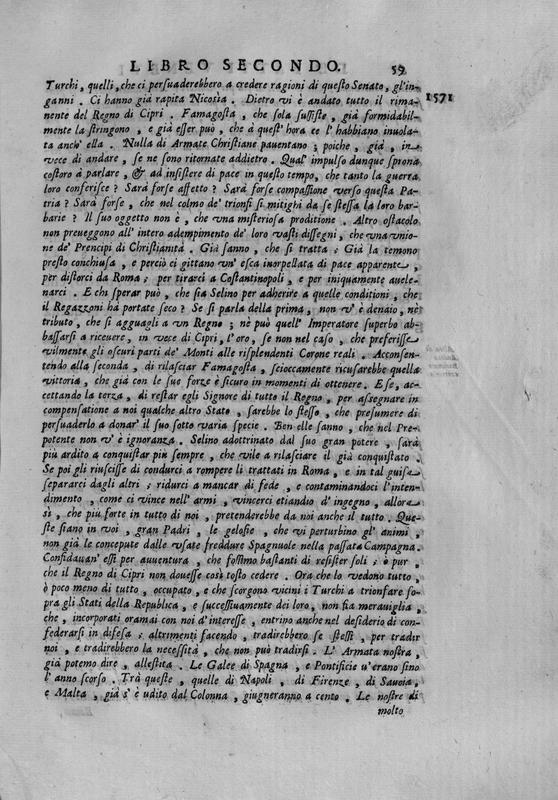 LIBRO SECONDO. 59
Turchi, quelli, che ci persuaderebbero a credere ragioni di questo Senato, gl'in-
ganni. Ci hanno già rapita Nicosia. Dietro vi è andato tutto il rima- 1571
nente del Regno di Cipri. Famagosta, che sola sussiste, già formidabil-
mente la stringono, e già esser può, che a quest' hora ce l' habbiano inuola-
ta anch' ella. Nulla di Armate Christiane pauentano; poiche, già, in
vece di andare, se ne sono ritornate addietro. Qual' impulso dunque sprona
costoro à parlare, & ad insistere di pace in questo tempo, che tanto la guerra
loro conferisce? Sarà forse affetto? Sarà forse compassione verso questa Pa-
tria? Sarà forse, che nel colmo de' trionfi si mitighi da se stessa la loro bar-
barie? Il suo oggetto non è, che vna misteriosa proditione. Altro ostacolo
non preueggono all' intero adempimento de' loro vasti dissegni, che vna vnio-
ne de' Prencipi di Christianità. Già sanno, che si tratta; Già la temono
presto conchiusa, e perciò ci gittano vn' esca inorpellata di pace apparente,
per distorci da Roma; per tirarci a Costantinopoli, e per iniquamente auele-
narci. E chi sperar può, che sia Selino per adherire a quelle conditioni, che
il Regazzoni hà portate seco? Se si parla della prima, non v' è denaio, nè
tributo, che si agguagli a vn Regno; nè può quell' Imperatore superbo ab-
bassarsi a riceuere, in vece di Cipri, l'oro, se non nel caso, che preferisse
vilmente gli oscuri parti de' Monti alle risplendenti Corone reali. Acconsen-
tendo alla seconda, di rilasciar Famagosta, scioccamente ricusarebbe quella
vittoria, che già con le sue forze è sicuro in momenti di ottenere. E se, ac-
cettando la terza, di restar egli Signore di tutto il Regno, per assegnare in
compensatione a noi qualche altro Stato, sarebbe lo stesso, che presumere di
persuaderlo a donar' il suo sotto varia specie. Ben elle sanno, che nel Pre-
potente non v' è ignoranza. Selino adottrinato dal suo gran potere, sarà
più ardito a conquistar più sempre, che vile a rilasciare il già conquistato.
Se poi gli riuscisse di condurci a rompere li trattati in Roma, e in tal guisa
separarci dagli altri; ridurci a mancar di fede, e contaminandoci l'inten-
dimento, come ci vince nell' armi, vincerci etiandio d' ingegno, allora
sì, che più forte in tutto di noi, pretenderebbe da noi anche il tutto. Que-
ste siano in voi, gran Padri, le gelosie, che vi perturbino gl' animi,
non già le concepute dalle vsate freddure Spagnuole nella passata Campagna.
Confidauan' essi per auuentura, che fossimo bastanti di resister soli; è pur,
che il Regno di Cipri non douesse così tosto cedere. Ora che lo vedono tutto,
ò poco meno di tutto, occupato, e che scorgono vicini i Turchi a trionfare so-
pra gli Stati della Republica, e successiuamente dei loro, non sia merauiglia,
che, incorporati oramai con noi d'interesse, entrino anche nel desiderio di con-
federarsi in difesa; altrimenti facendo, tradirebbero se stessi, per tradir
noi, e tradirebbero la necessità, che non può tradirsi. L' Armata nostra,
già potemo dire, allestita. Le Galee di Spagna, e Pontificie v'erano sino
l' anno scorso. Trà queste, quelle di Napoli, di Firenze, di Sauoia,
e Malta, già s' è udito dal Colonna, giugneranno a cento. Le nostre di
molto